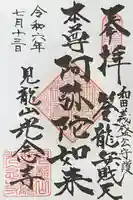 奉拝
和田義盛公守護
筌龍弁財天
本尊阿弥陀如来
令和六年
七月十三日
見龍山光念寺